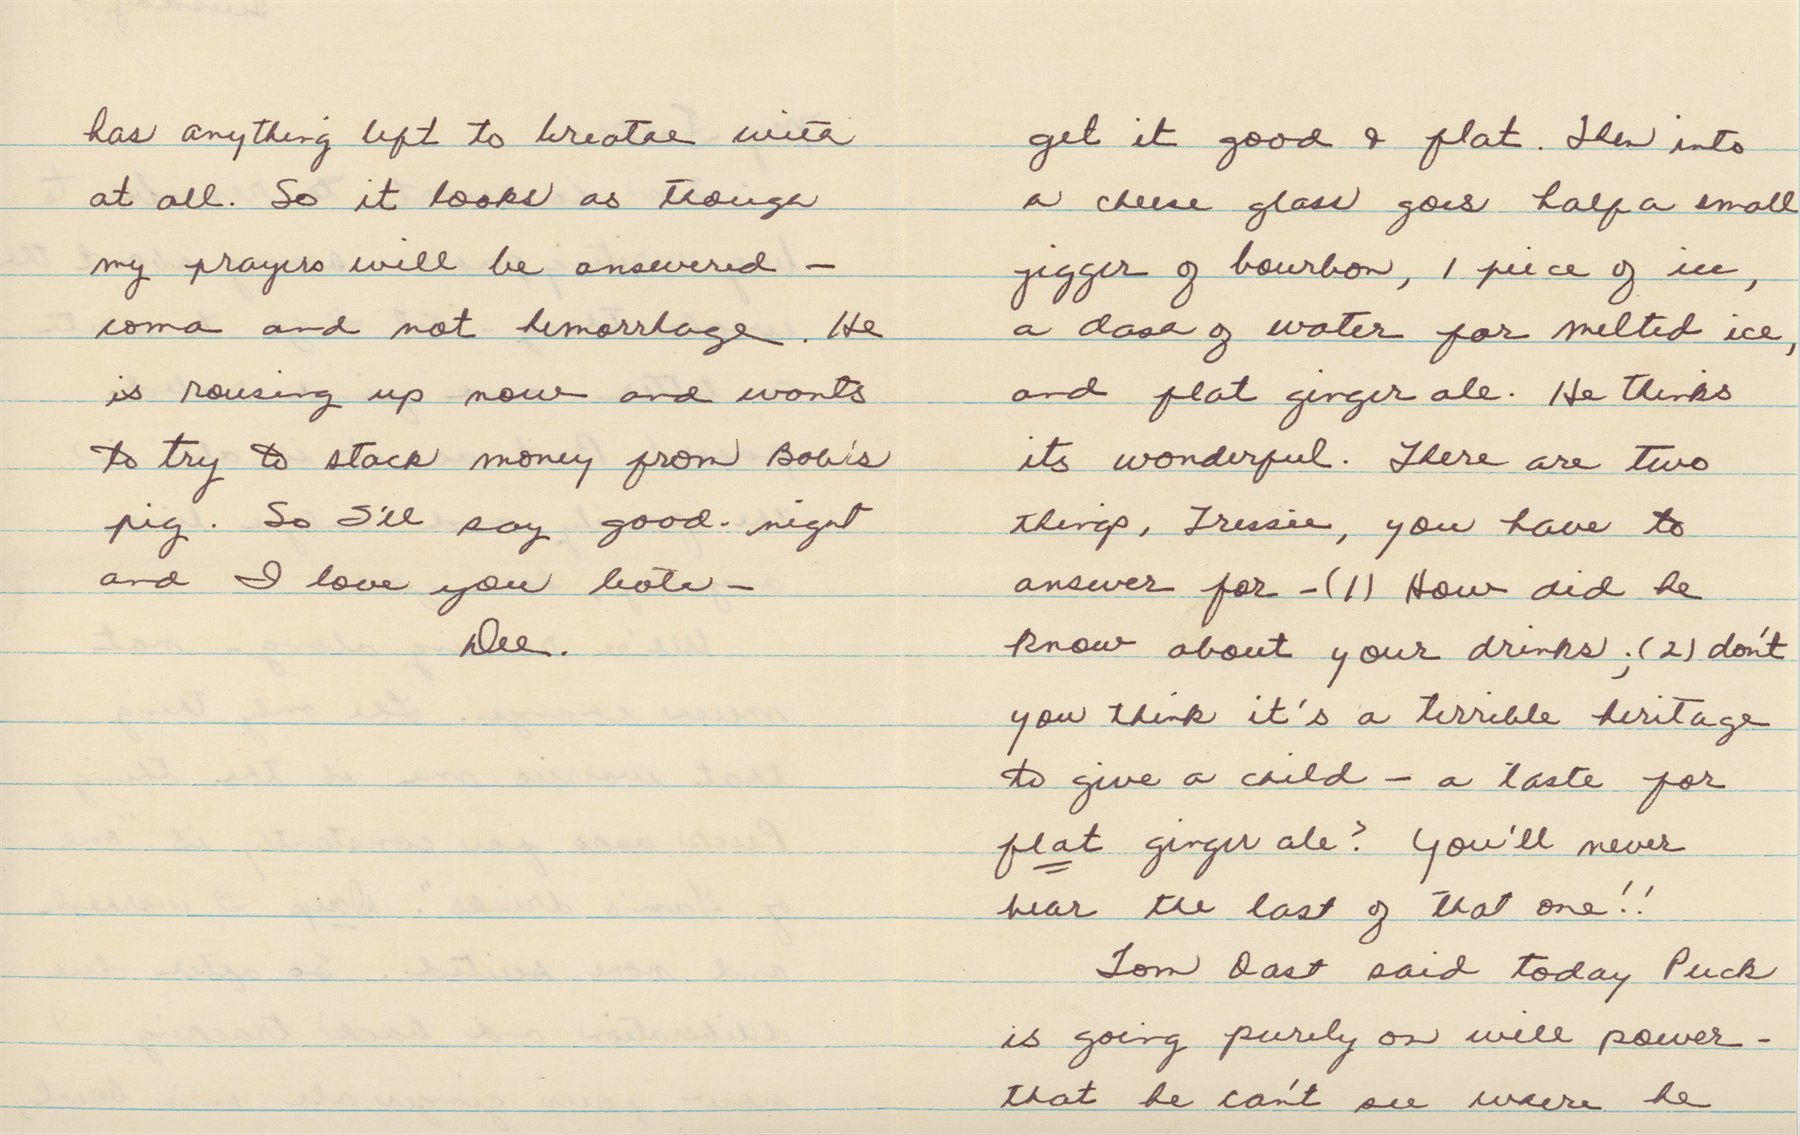 has anything left to breathe with
at all. So it looks as though
my prayers will be answered —
coma and not hemorrhage. He
is rousing up now and wants
to try to stack money from Bob's
pig. So I'll say good-night
and I love you both —
Dee.
get it good & flat. Then into
a cheese glass goes half a small
jigger of bourbon, 1 piece of ice,
a dash of water for melted ice,
and flat ginger ale. He thinks
its wonderful. There are two
things, Tressie, you have to
answer for - (1) How did he
know about your drinks; (2) don't
you think it's a terrible heritage
to give a child — a taste for
flat ginger ale? You'll never
hear the last of that one!!
Tom Oast said today Puck
is going purely on will power -
that he can't see where he